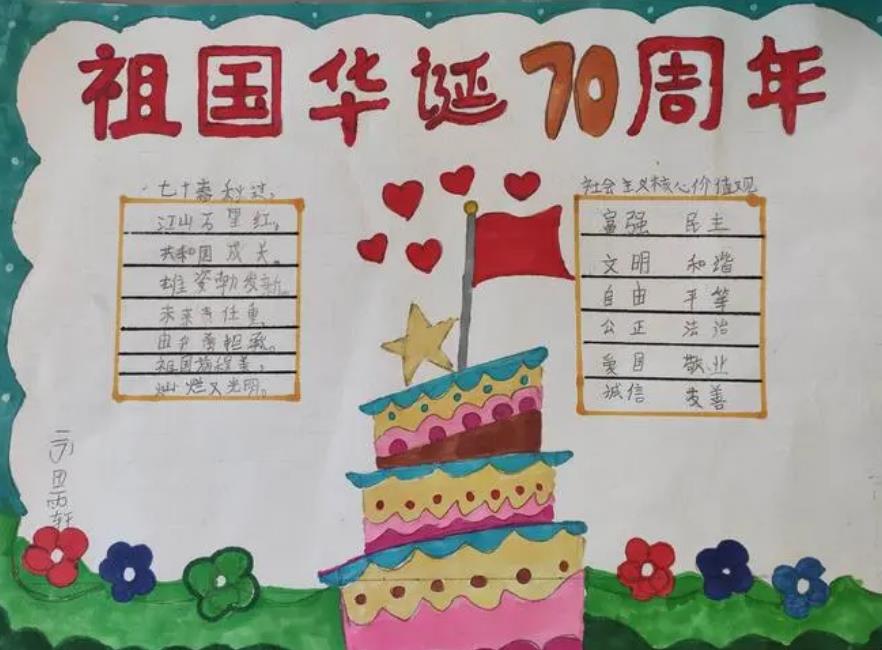 祖国华诞70周年
七十春秋过,
江山万里红,
共和国成长。
雄姿勃发新。
未来责任重,
担承。
祖国前程美,
灿烂又光明。
社会主义核心价值观
富强 民主
文明 和谐
自由 平等
公正 法治
爱国 敬业
诚信 友善
雨轩